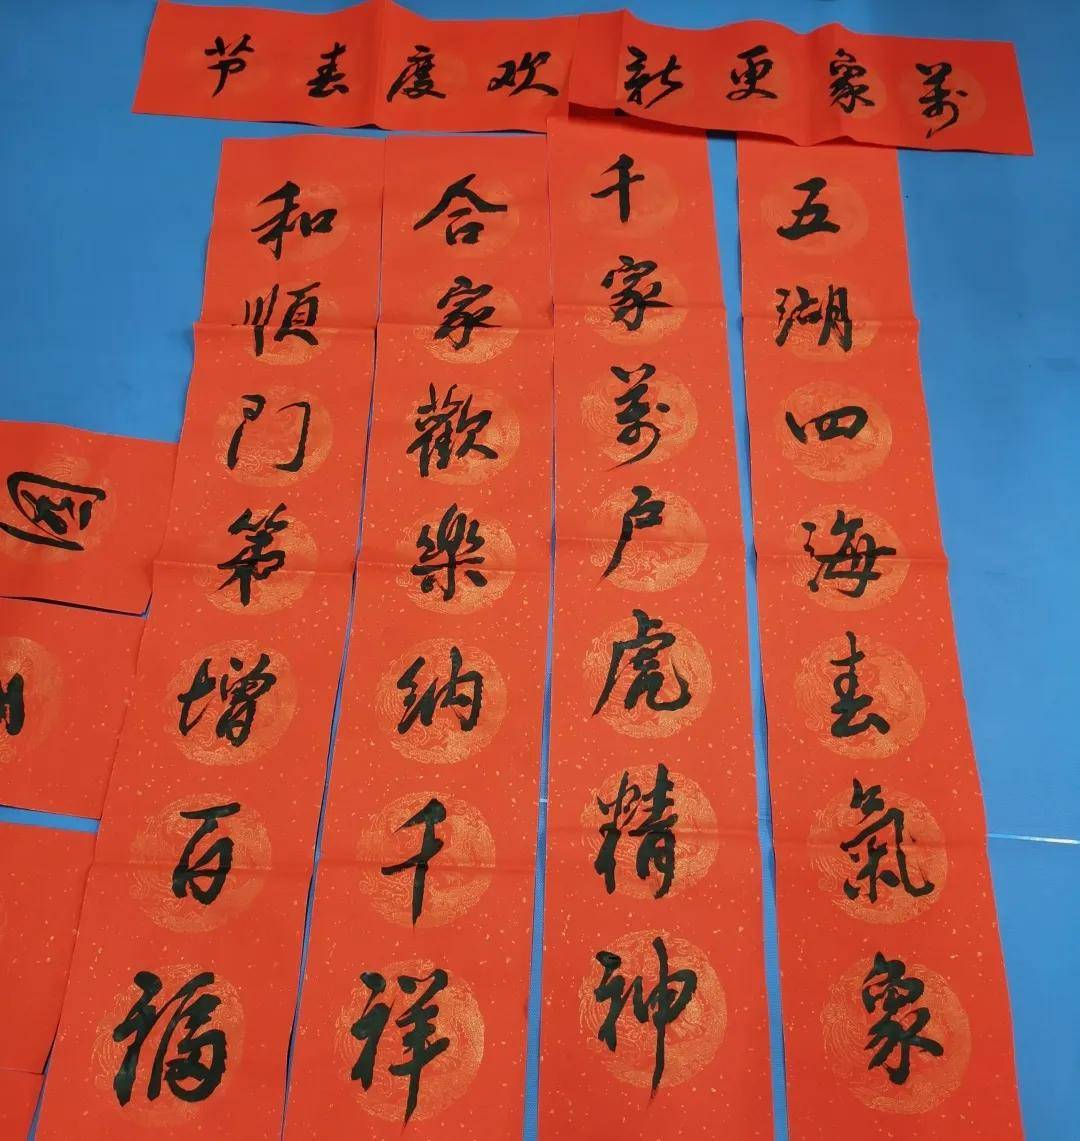 萬象更新
欢度春节
五湖四海春氣象
千家萬户虎精神
合家歡樂納千祥
和順门第增百福